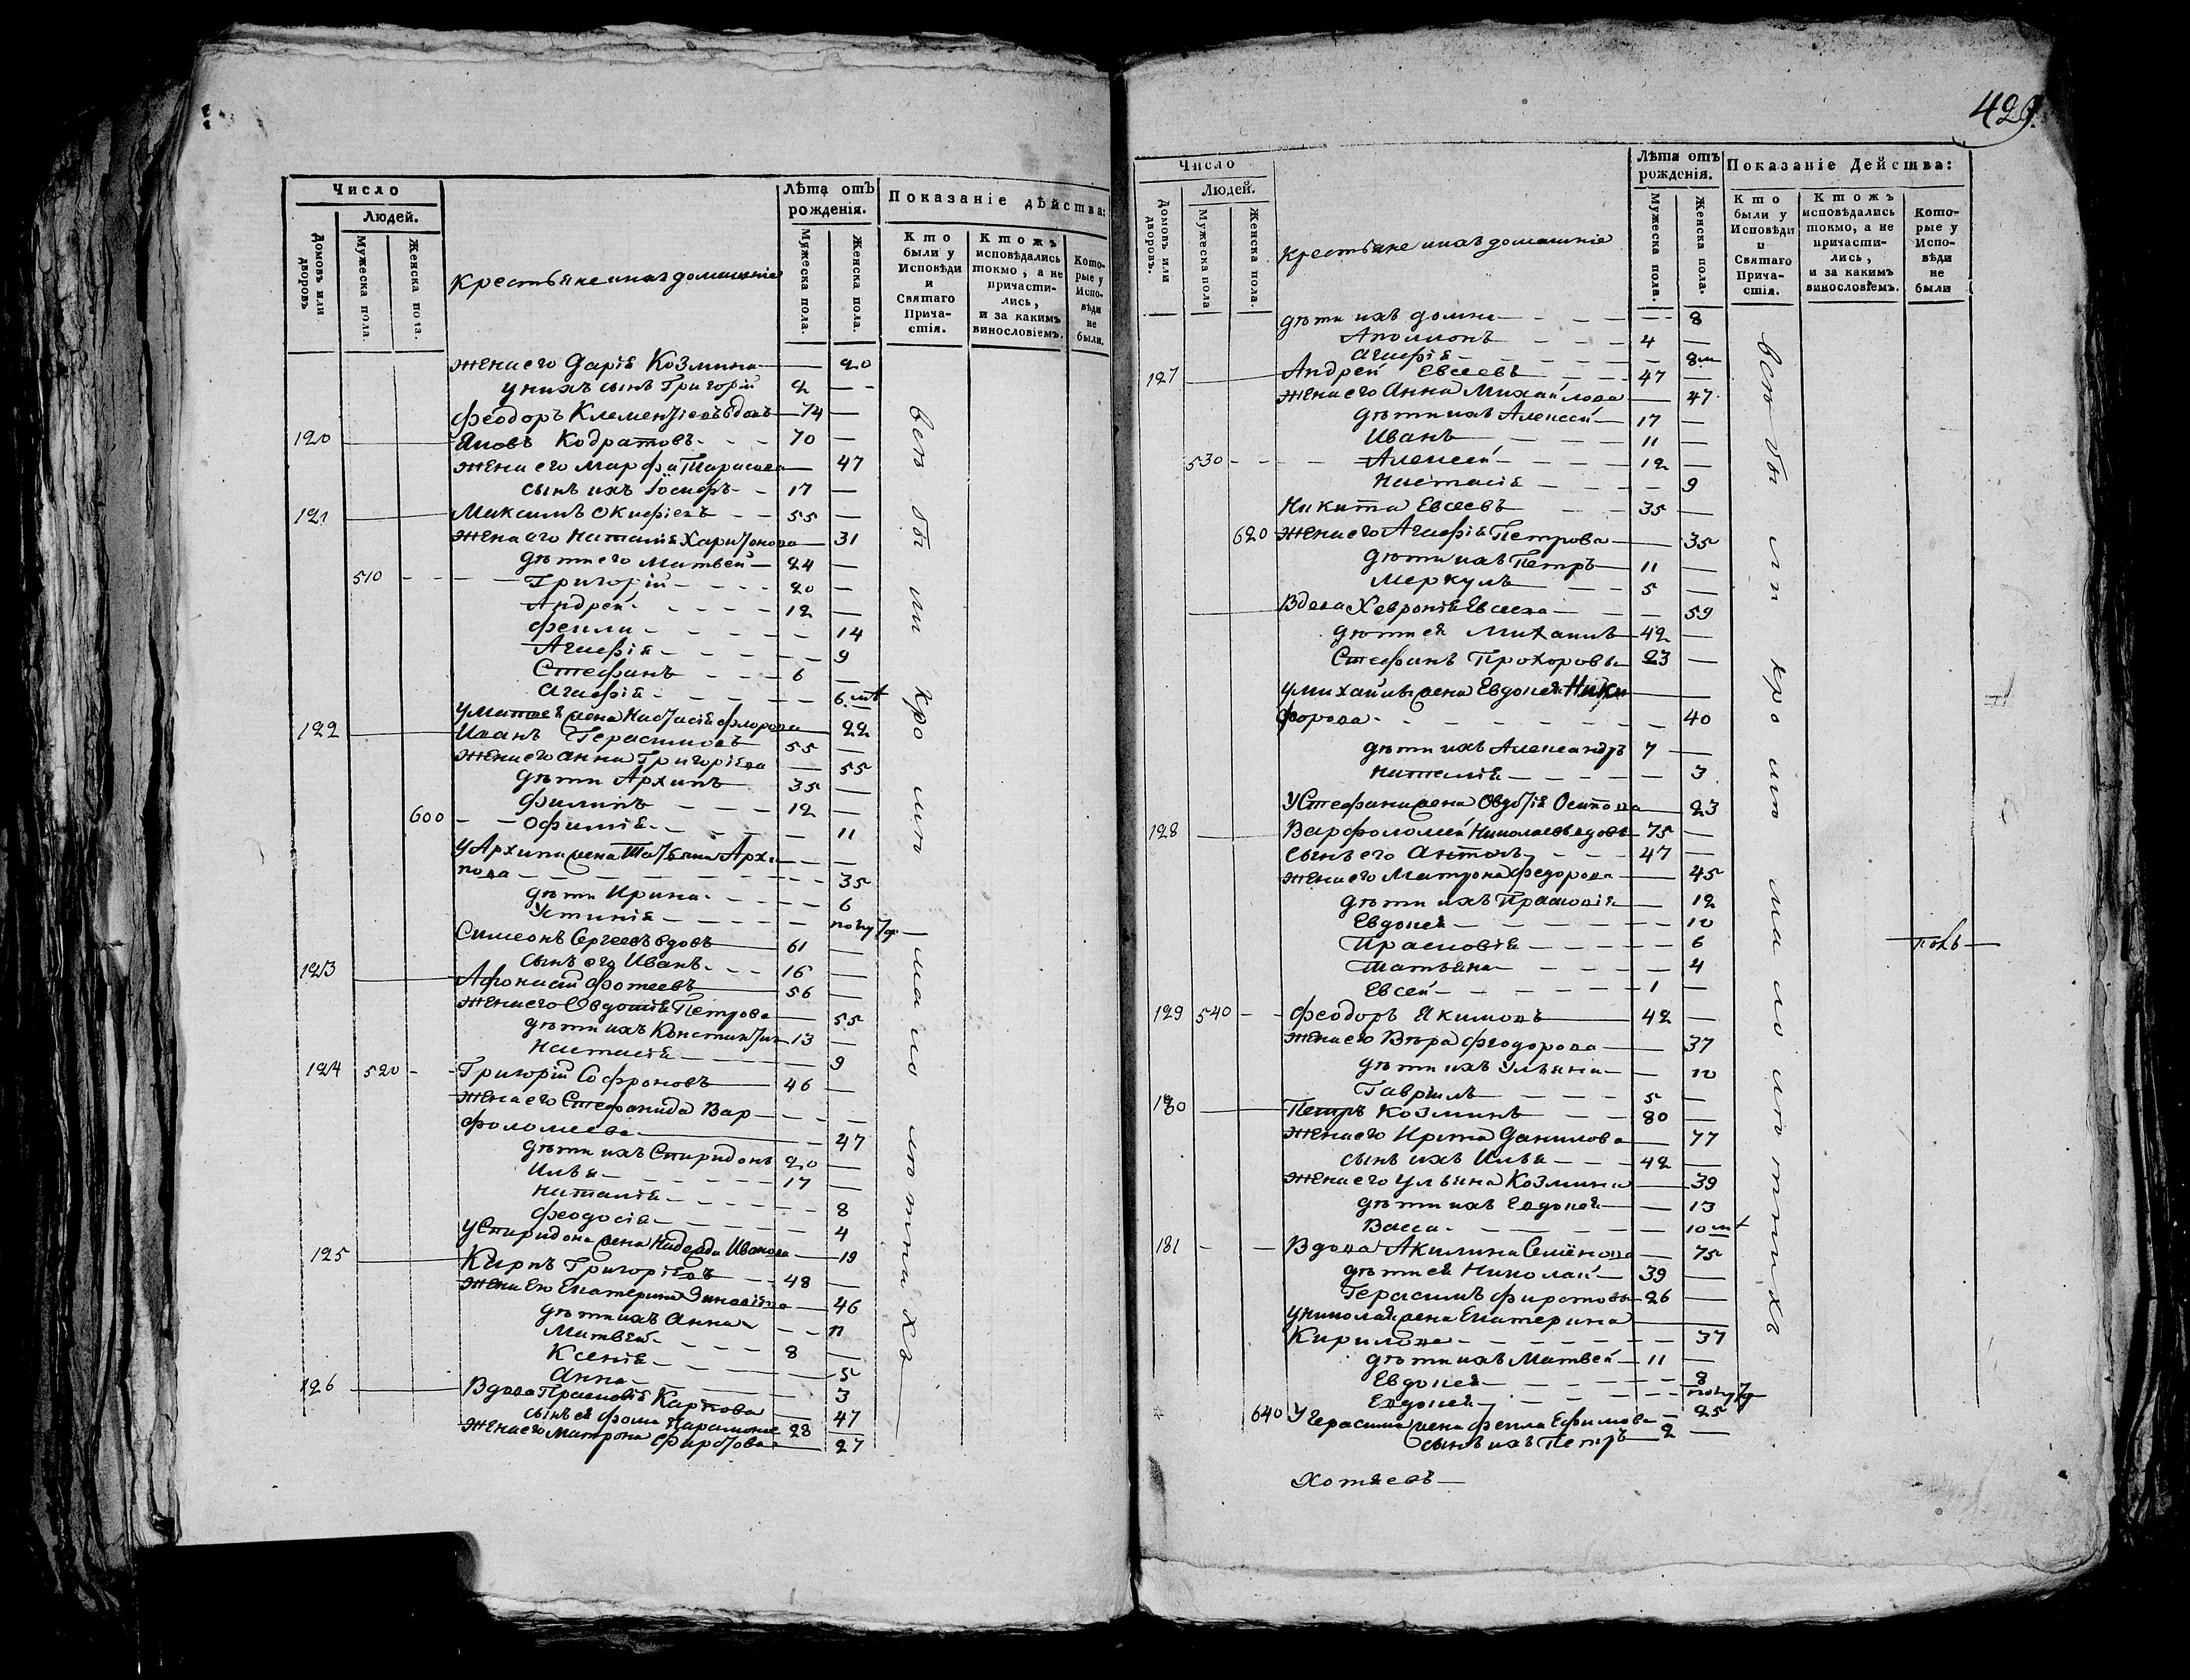 Число
Людей.
Домовъ или дворовъ
Мужеска пола.
Женска пола.
Крестьяне ихъ домашніе
Лѣта отъ рожденія.
Мужеска пола.
Женска пола.
Показаніе дѣйства:
Кто были у Исповѣди и Святаго Прича-стія.
Ктожъ исповѣдались токмо, а не причасти-лись, и за какимъ винословіемъ.
Кото-рые у Испо-вѣди не были.
жена его Дарія Козмина 20
у нихъ сынъ Григорій 2
Феодоръ Клементіевъ вдовъ 74
120 Яковъ Кодратовъ 70
жена его Марфа Тарасова 47
сынъ ихъ Іосифъ 17
121 Максимъ 55
жена его Наталія Харитонова 31
дѣти его Матвей 24
510 Григорій 20
Андрей 12
Фекла 14
Агафія 9
Стефанъ 6
Агафія 6 м
у Матвея жена Настасія Флорова 22
122 Иванъ Герасимовъ 55
жена его Анна Григоріева 55
дѣти Архипъ 35
Филипъ 12
600 Офимія 11
у Архипа жена Татьяна
35
дѣти Ирина 6
Устинія полутор
Симеонъ Сергеевъ вдовъ 61
сынъ его Иванъ 16
123 Афонасій Фотеевъ 56
жена его Овдотія Петрова 55
дѣти ихъ Константинъ 13
Настасія 9
124 520 Григорій Софроновъ 46
жена его Стефанида Вар
фоломеева 47
дѣти ихъ Спиридонъ 20
Илья 17
Наталія 8
Феодосія 4
у Спиридона жена Надежда Иванова 19
125 Карпъ Григоріевъ 48
жена его Екатерина Зиновіева 46
дѣти ихъ Анна 11
Матвей 8
Ксенія 5
Анна 3
126 Вдова Прасковія Карпова 47
сынъ ея Фома 28
жена его Матрона Фирсова 27
всѣ были кромѣ малолѣтнихъ
429.
Число
Людей.
Домовъ или дворовъ.
Мужеска пола
Женска пола.
Крестьяне ихъ домашніе
Лѣта отъ рожденія.
Мужеска пола.
Женска пола.
Показаніе Действа:
Кто были у Исповѣди и Святаго Прича-стія.
Ктожъ исповѣдались токмо, а не причасти-лись, и за какимъ винословіемъ.
Кото-рые у Испо-вѣди не были
дѣти ихъ Домна 8
4
Агафія 8 м
127 Андрей Евсеевъ 47
жена его Анна Михайлова 47
дѣти ихъ Алексей 17
Иванъ 11
530 Алексей 12
Настасія 9
Никита Евсеевъ 35
620 жена его Агафія Петрова 35
дѣти ихъ Петръ 11
Меркулъ 5
Вдова Хевронія Евсеева 59
дѣти ея Михаилъ 42
Стефанъ Прохоровы 23
у Михайлы жена Евдокея Ники
форова 40
дѣти ихъ Александръ 7
Наталія 3
у Стефана жена Овдотія Осипова 23
128 Варфоломей Николаевъ вдовъ 75
сынъ его Антонъ 47
жена его Матрона Федорова 45
дѣти ихъ Прасковія 12
Евдокея 10
Прасковія 6
Татьяна 4
Евсей 1
129 540 Феодоръ Якимовъ 42
жена его Вѣра Феодорова 37
дѣти ихъ Ульяна 10
Гавріилъ 5
130 Петръ Козминъ 80
жена его Данилова 77
сынъ ихъ Илья 42
жена его Ульяна Козмина 39
дѣти ихъ Евдокея 13
Васса 10 м
131 Вдова Акилина Семёнова 75
дѣти ея Николай 39
Герасимъ Фирсовы 26
у Николая жена Екатерина
Кирилова 37
дѣти ихъ Матвей 11
Евдокея 8
Евдокея полутор
640 у Герасима жена Фекла Ефимова 25
сынъ ихъ Петръ 2
всѣ были кромѣ малолѣтнихъ
Хотяевъ